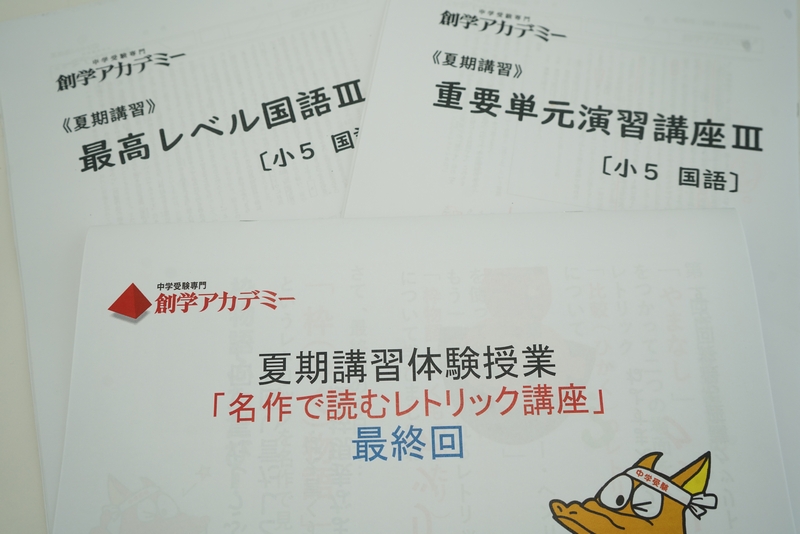 中学受験専門
創学アカデミー
《夏期講習》
最高レベル国語Ⅲ
〔小５ 国
中学受験専門
創学アカデミー
《夏期講習》
重要単元演習講座Ⅲ
〔小５ 国語〕
中学受験専門
創学アカデミー
夏期講習体験授業
「名作で読むレトリック講座」
最終回
中学受験